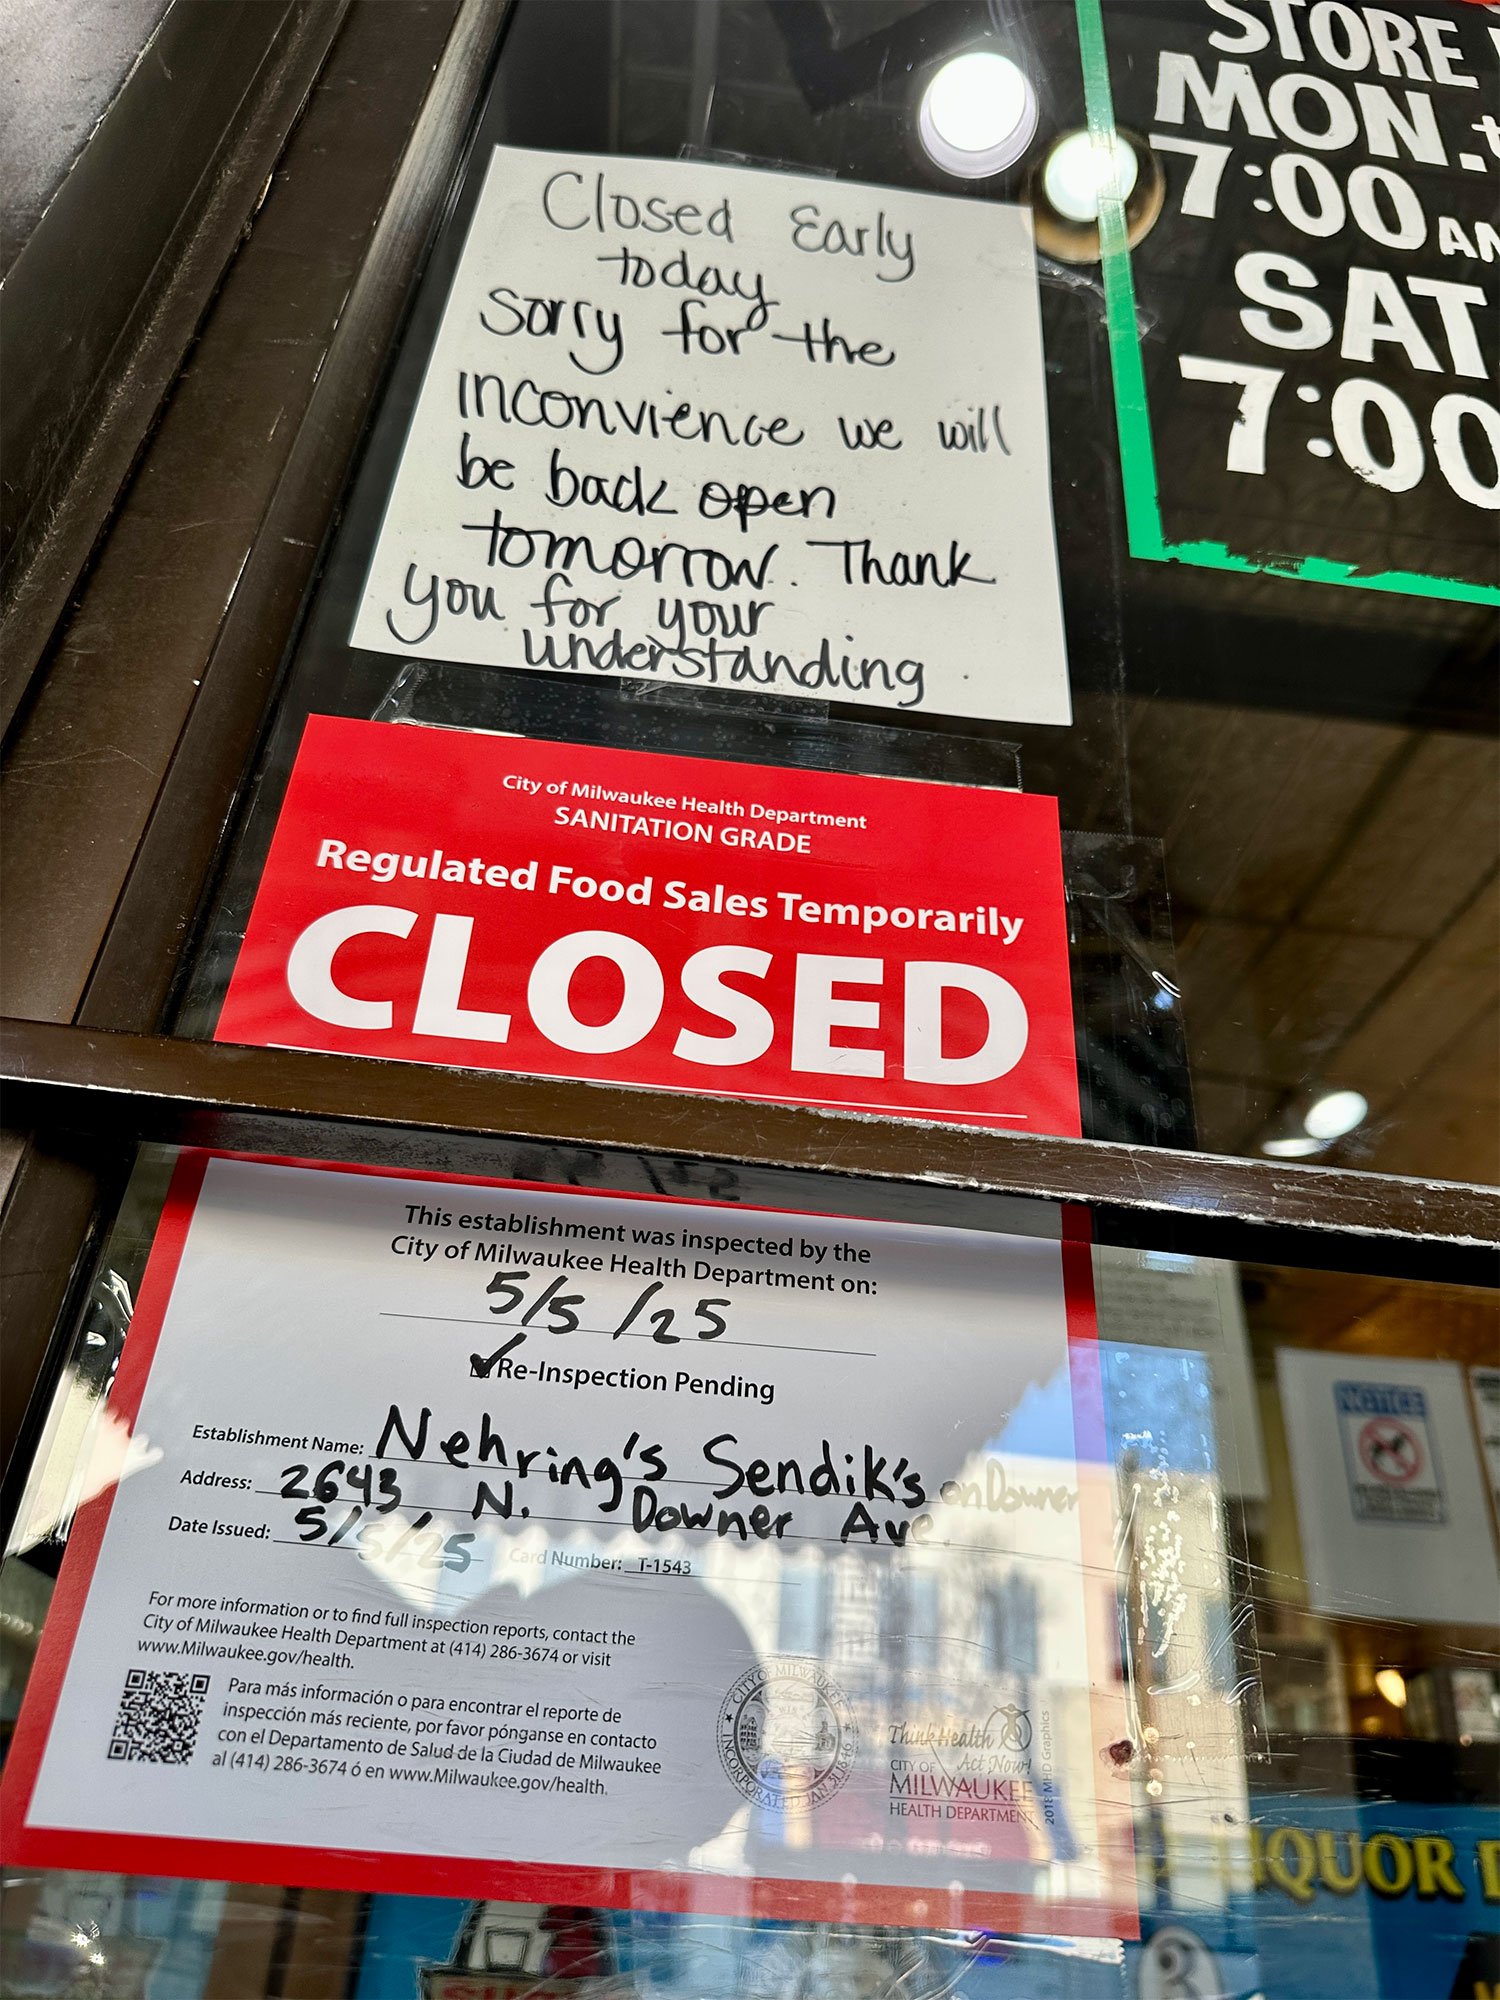 Closed Early
today
sorry for the
inconvience we will
be back open
tomorrow. Thank
you for your
understanding.
STORE
MON.
7:00 AM
SAT
7:00
City of Milwaukee Health Department
SANITATION GRADE
Regulated Food Sales Temporarily
CLOSED
This establishment was inspected by the
City of Milwaukee Health Department on:
5/5/25
Re-Inspection Pending
Establishment Name: Nehring's Sendik's on Downer
Address: 2643 N. Downer Ave.
Date Issued: 5/5/25 Card Number: T-1543
For more information or to find full inspection reports, contact the
City of Milwaukee Health Department at (414) 286-3674 or visit
www.Milwaukee.gov/health.
Para más información o para encontrar el reporte de
inspección más reciente, por favor pónganse en contacto
con el Departamento de Salud de la Ciudad de Milwaukee
al (414) 286-3674 ó en www.Milwaukee.gov/health.
CITY OF MILWAUKEE
INCORPORATED JAN 31 1846
Think Health
Act Now!
CITY OF
MILWAUKEE
HEALTH DEPARTMENT
2018 MHD Graphics
NOTICE
LIQUOR